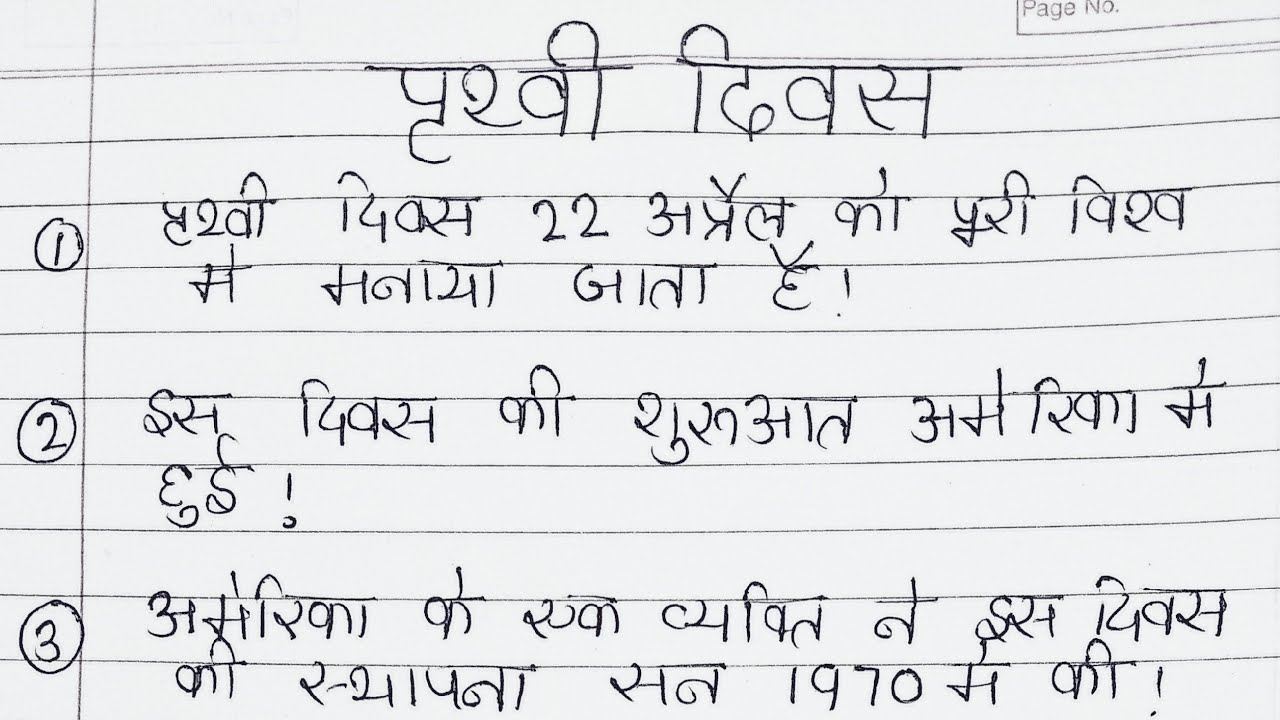 Page No.
पृथ्वी दिवस
पृथ्वी दिवस 22 अप्रैल को पूरी विश्व
① मे मनाया जाता है।
② इस दिवस की शुरुआत अमेरिका मे
हुई !
③ अमेरिका के एक व्यक्ति ने इस दिवस
की स्थापना सन 1970 मे की !